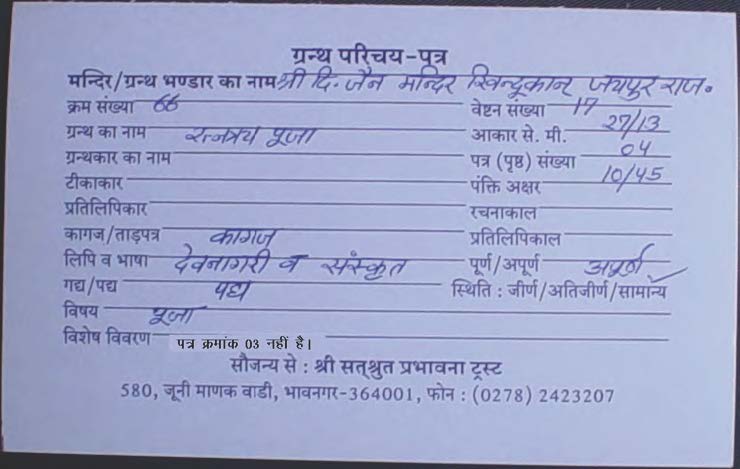 ग्रन्थ परिचय-पत्र
मन्दिर/ग्रन्थ भण्डार का नाम श्री दि. जैन मन्दिर खिन्दूकान जयपुर राज.
क्रम संख्या 66 वेष्टन संख्या 17
ग्रन्थ का नाम रत्नत्रय पूजा आकार से. मी. 27/13
ग्रन्थकार का नाम पत्र (पृष्ठ) संख्या 04
टीकाकार पंक्ति अक्षर 10/45
प्रतिलिपिकार रचनाकाल
कागज/ताड़पत्र कागज प्रतिलिपिकाल
लिपि व भाषा देवनागरी व संस्कृत पूर्ण/अपूर्ण अपूर्ण
गद्य/पद्य पद्य स्थिति : जीर्ण/अतिजीर्ण/सामान्य
विषय पूजा
विशेष विवरण पत्र क्रमांक 03 नहीं है।
सौजन्य से : श्री सत्श्रुत प्रभावना ट्रस्ट
580, जूनी माणक वाडी, भावनगर-364001, फोन : (0278) 2423207